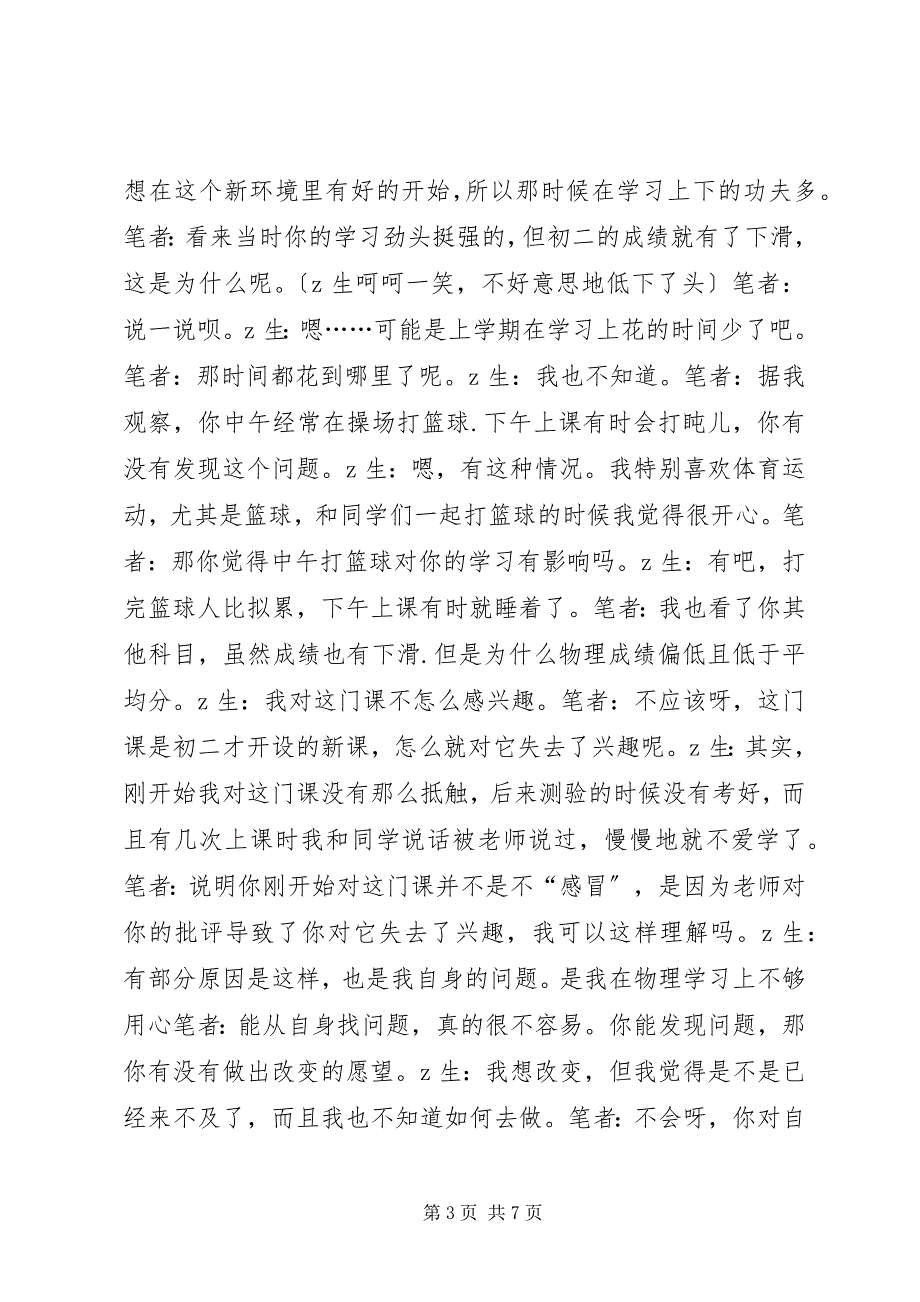 想在这个新环境里有好的开始,所以那时候在学习上下的功夫多。
笔者:看来当时你的学习劲头挺强的,但初二的成绩就有了下滑,
这是为什么呢。〔z 生呵呵一笑，不好意思地低下了头〕笔者：
说一说呗。z 生:嗯……可能是上学期在学习上花的时间少了吧。
笔者：那时间都花到哪里了呢。z 生：我也不知道。笔者：据我
观察，你中午经常在操场打篮球.下午上课有时会打盹儿，你有
没有发现这个问题。z 生：嗯，有这种情况。我特别喜欢体育运
动，尤其是篮球，和同学们一起打篮球的时候我觉得很开心。笔
者：那你觉得中午打篮球对你的学习有影响吗。z 生：有吧，打
完篮球人比拟累，下午上课有时就睡着了。笔者:我也看了你其
他科目，虽然成绩也有下滑.但是为什么物理成绩偏低且低于平
均分。z 生：我对这门课不怎么感兴趣。笔者：不应该呀，这门
课是初二才开设的新课，怎么就对它失去了兴趣呢。z 生:其实，
刚开始我对这门课没有那么抵触，后来测验的时候没有考好，而
且有几次上课时我和同学说话被老师说过，慢慢地就不爱学了。
笔者:说明你刚开始对这门课并不是不“感冒〞，是因为老师对
你的批评导致了你对它失去了兴趣，我可以这样理解吗。z 生：
有部分原因是这样，也是我自身的问题。是我在物理学习上不够
用心笔者:能从自身找问题，真的很不容易。你能发现问题，那
你有没有做出改变的愿望。z 生：我想改变，但我觉得是不是已
经来不及了，而且我也不知道如何去做。笔者：不会呀，你对自
第 3 页 共 7 页